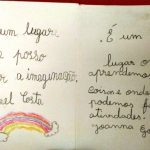 um lugar
posso
a imaginação.
Costa
É um
lugar o
aprendemos
coisas e onde
podemos f
atividades.
Joanna